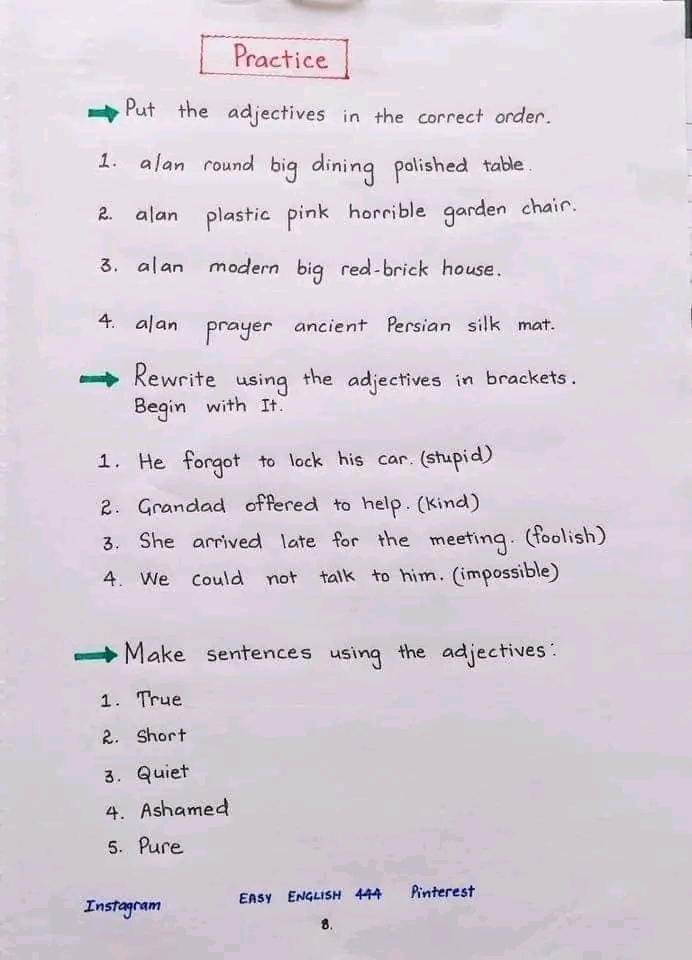 Practice
Put the adjectives in the correct order.
1. a/an round big dining polished table.
2. a/an plastic pink horrible garden chair.
3. a/an modern big red-brick house.
4. a/an prayer ancient Persian silk mat.
Rewrite using the adjectives in brackets.
Begin with It.
1. He forgot to lock his car. (stupid)
2. Grandad offered to help. (kind)
3. She arrived late for the meeting. (foolish)
4. We could not talk to him. (impossible)
Make sentences using the adjectives:
1. True
2. Short
3. Quiet
4. Ashamed
5. Pure
Instagram EASY ENGLISH 444 Pinterest
8.